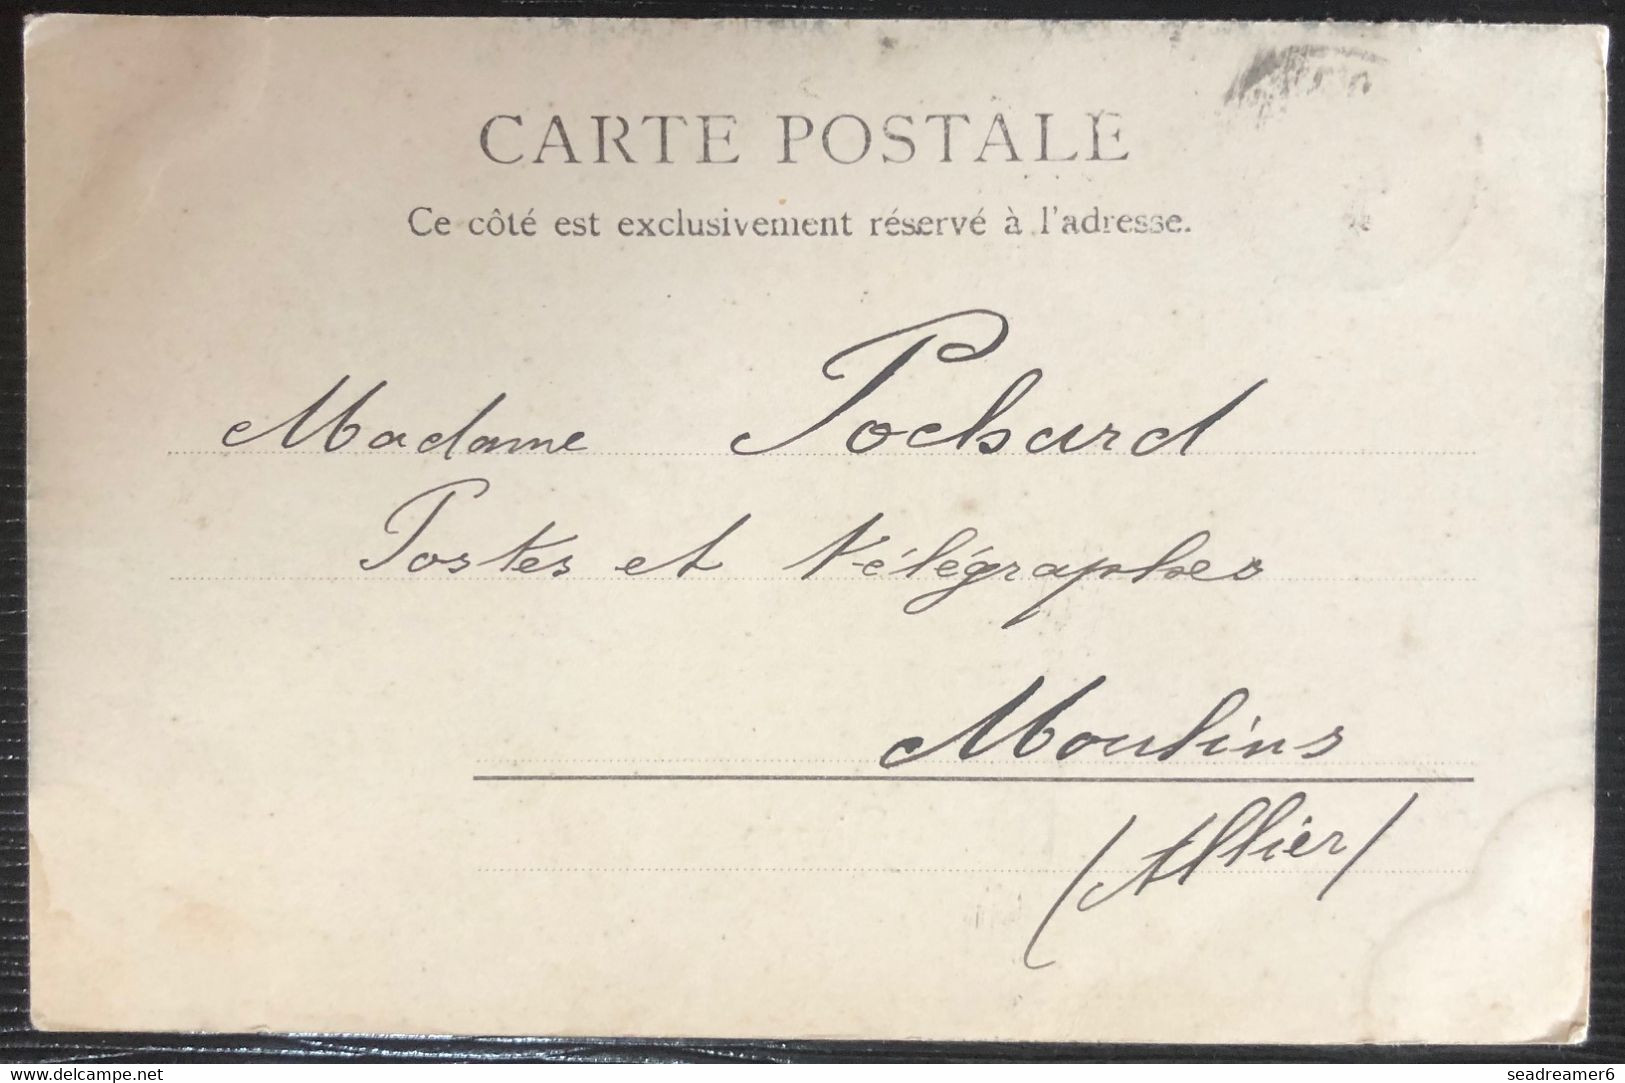 CARTE POSTALE
Ce côté est exclusivement réservé à l'adresse.
Madame Pochard
Postes et télégraphes
Moulins
(Allier)
www.delcampe.net
seadreamer6